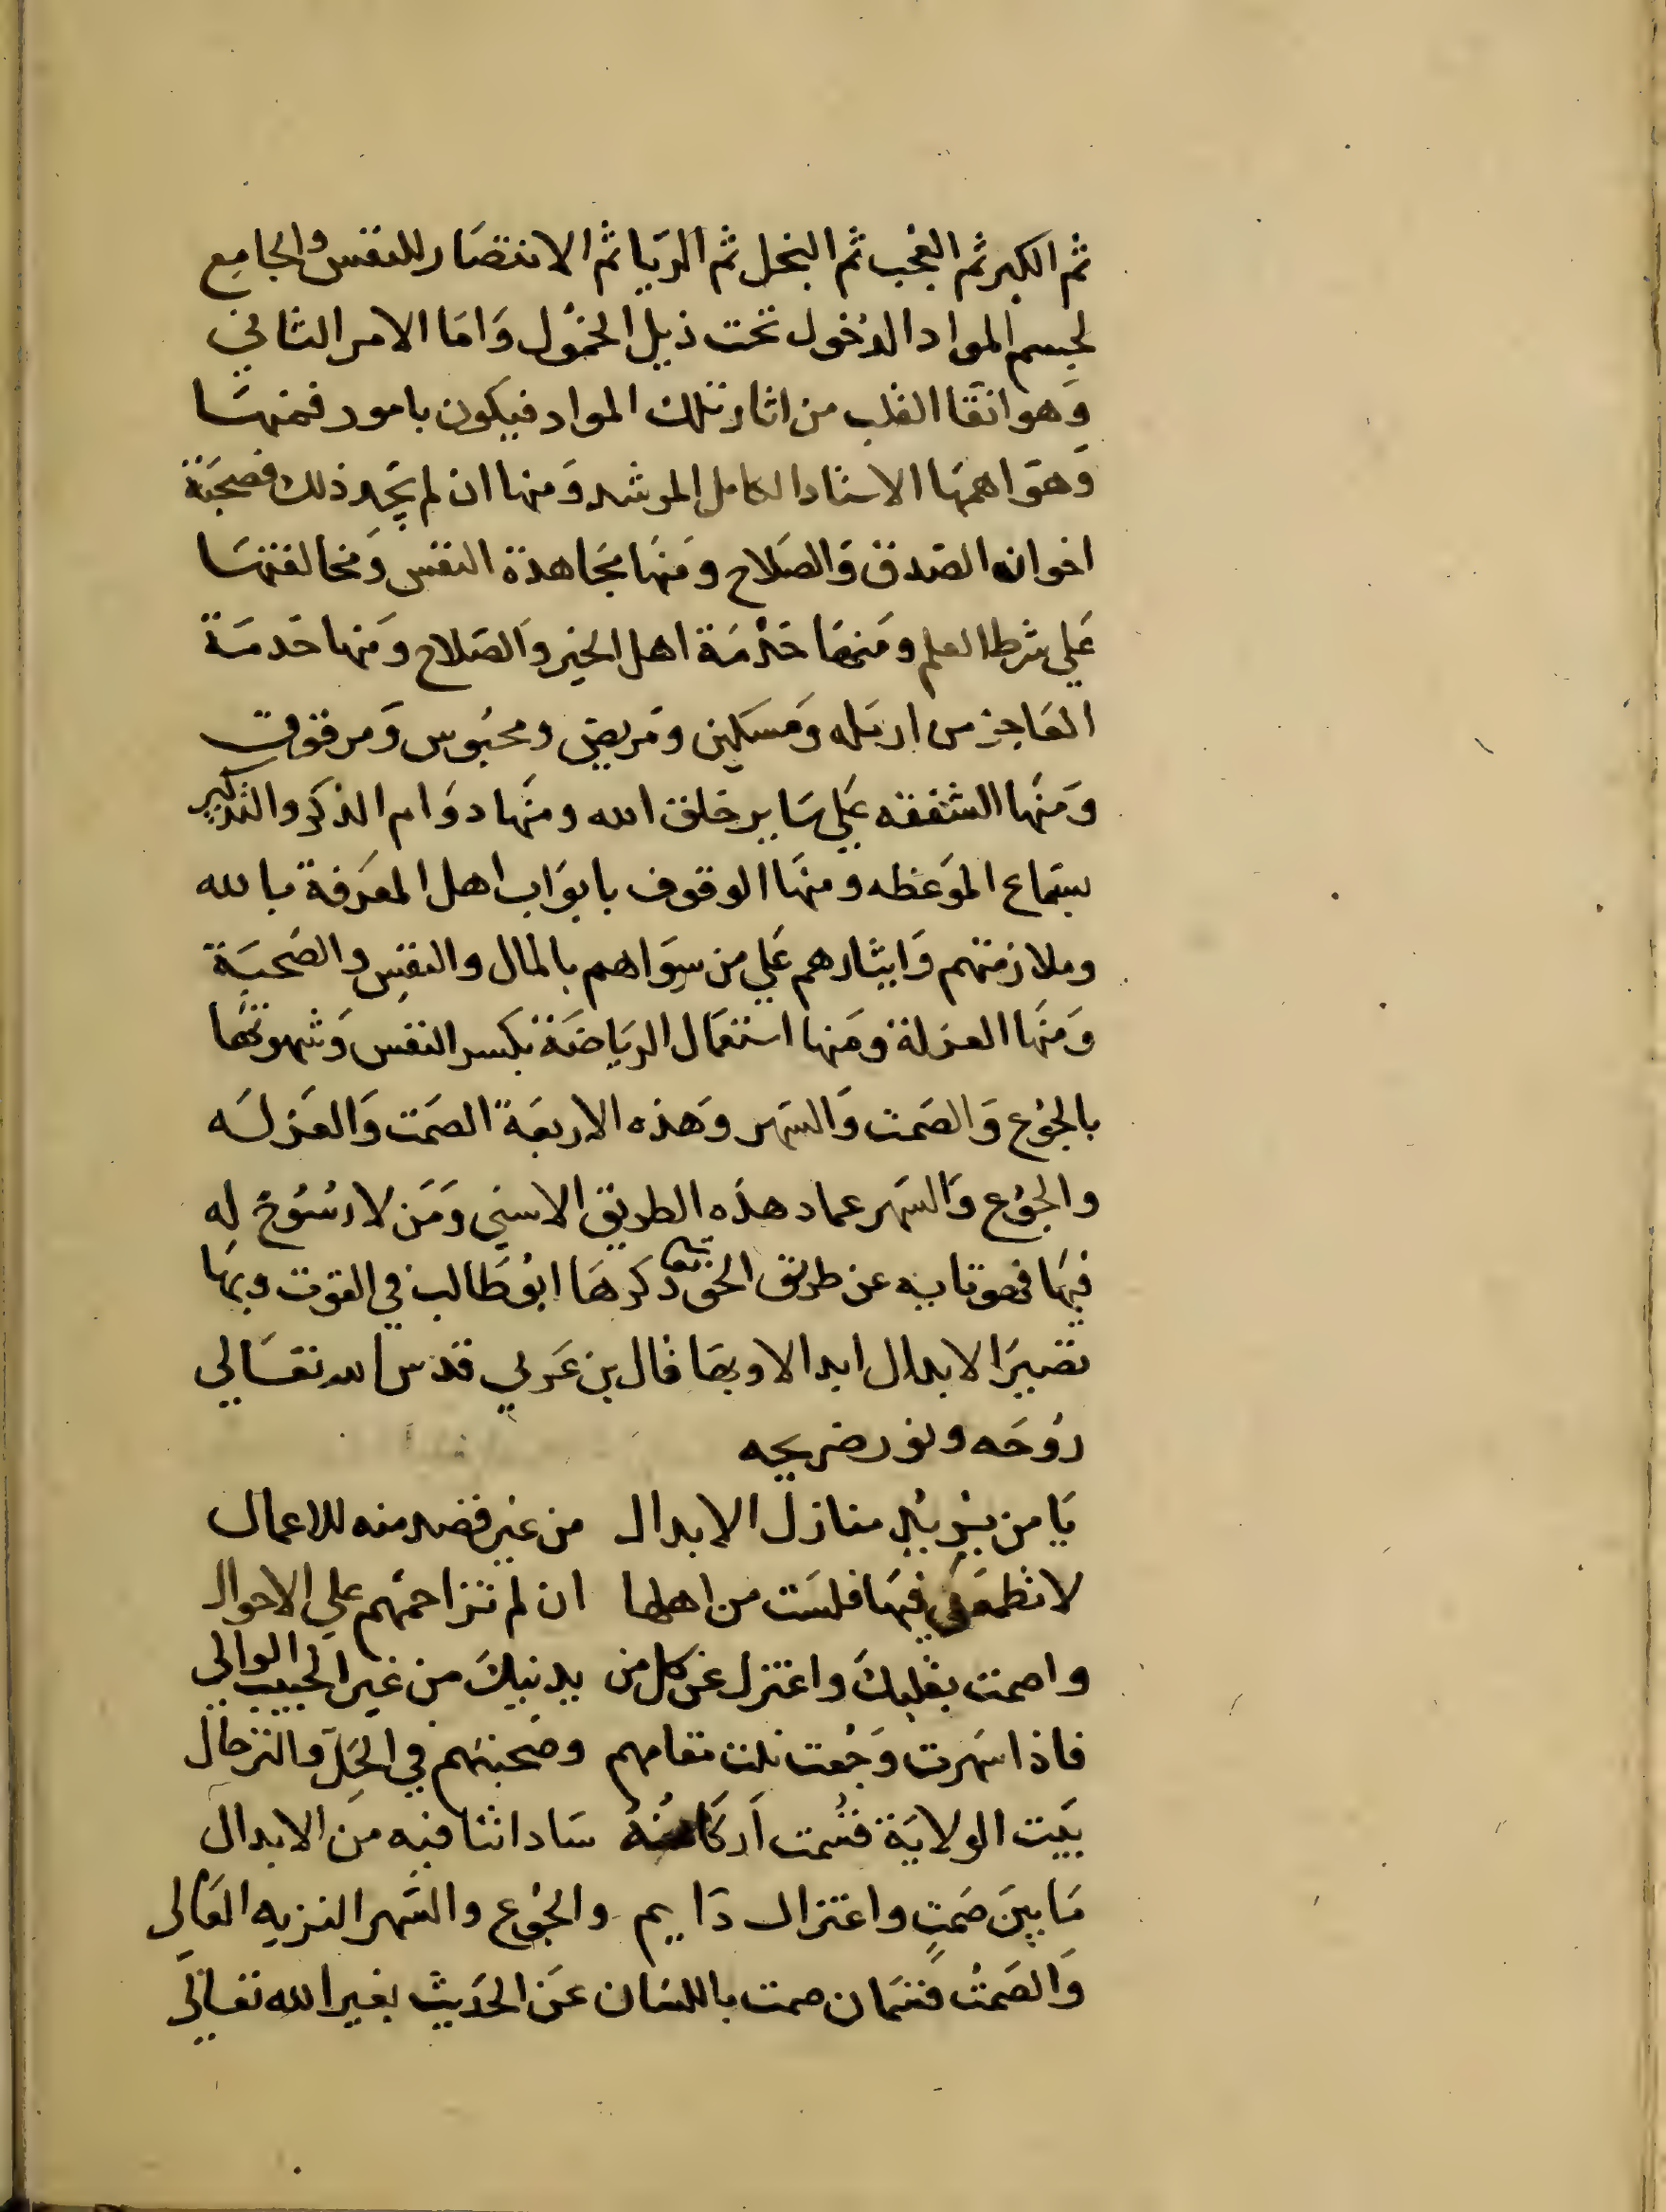 ثم الكبر ثم العُجب ثم البخل ثم الرَيا ثم الانتصَار للنفس والجامع
لجسم المواد الدُخول تحت ذيل الخمُول وَامَا الامر الثاني
وَهو انقَا القلب من اثار تلك المواد فيكون بامور فمنهَا
وَهوَ اهمهَا الاستاد الكامل المرشد وَمنها ان لم يَجِد ذلك فصحبَة
اخوان الصَدق وَالصَلاح ومَنهَا مجَاهدة النفس وَمخالفتهَا
عَلي شرط العلم ومَنهَا خدْمَة اهل الخير وَالصَلاح ومَنها خَدمَة
العَاجز من ارمله وَمسَكين ومَريض ومحبُوس وَمرفوق
وَمنهَا الشفقه عَلي سَاير خلق الله ومنهَا دوَام الذكر والتذكير
بستماع الموَعظه ومنهَا الوقوف بابوَاب اهل المعَرفة بالله
وملازمتهم وَايثارهم عَلي من سِوَاهم بالمال والنفِس والصُحبَة
وَمنهَا العزلة ومَنها استعمَال الريَاضَة بكسر النفس وَشهوتهَا
بالجُوع وَالصَمت وَالسَهر وَهذه الاربعَة الصَمت وَالعَزلَه
والجُوع وَالسَهر عماد هذه الطريق الاسني وَمَن لا رسُوخ له
فيهَا فهو تايه عن طريق الحق تعالى ذكرهَا ابوُ طَالب في القوت وبهَا
تصيرَ الابدال ابدالا وبهَا قال بن عَربي قدس الله تعَالي
روُحَه ونور ضريحه
يَا من يُريُد منازل الابدال من غير قصد منه للاعمال
لا تطمعَن فيهَا فلسَت من اهلها ان لم تزاحمهُم علي الاحوال
واصمت بقلبكَ واعتزل عَن كل من يدنيكَ من غير الحبيب الوالي
فاذا سَهرت وَجُعت نلت مَقامهم وصَحبتهَم في الحَِلّ والترحال
بيَت الولايَة قسُمت اَركانهُ سَاداتنا فيه من الابدال
مَا بينَ صَمتٍ واعتزال دَايم والجُوع والسَهر النزيه العَالى
وَالصَمتُ قسَمَان صمت باللسَان عَن الحدَيث بغير الله تعَالي